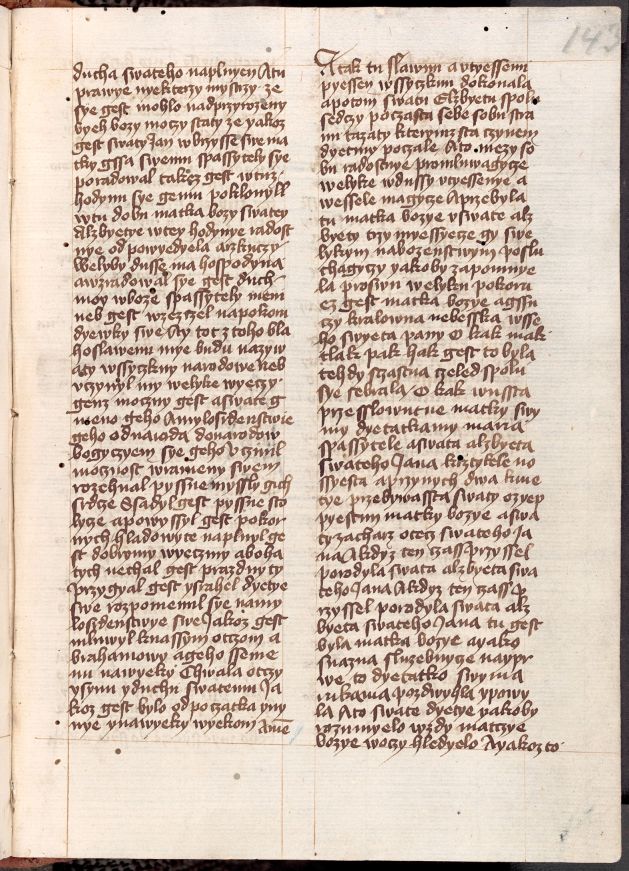 143
ducha swateho naplnyen Atu
prawye nyekterzy mystrzy ze
sye gest mohlo nadprzyrozeny
byeh bozy moczy staty ze yakoz
gest swaty Jan w brzysse swe ma
tky gssa swemu spassytely sye
poradowal takez gest wtuz
hodynu sye gemu poklonyll
wtu dobu matka bozy swatey
Alzbyetye wtey hodynye radost
nye odpowyedyela arzkuczy
Welyby dusse ma hospodyna
awzradowal sye gest duch
moy wboze spassytely mem
neb gest wzezrzel napokoru
dyewky swe Ay tot z toho bla
hoslawenu mye budu nazyw
aty wssyczkny narodowe neb
vczynyl my welyke wyeczy
genz moczny gest aswate g
meno geho Amylosidenstwie
geho odnaroda donarodow
bogyczyem sye geho Vczinil
mocznost wrameny swem
rozehnal pyssne myssly gich
srdcze Ssadyl gest pyssne sto
lycze apowyssyl gest pokor
nych hladowyte naplnyl ge
st dobrymy wyeczmy aboha
tych nechal gest prazdny ty
Przygyal gest ysrahel dyetye
swe rozpomenul sye namy
losidenstwye swe Jakoz gest
mluwyl knassym otczom a
brahamowy ageho sseme
nu nawyeky Chwala otczy
ysynu yduchu swatemu Ja
koz gest bylo odpoczatka yny
nye ynawyeky wyekom Ame
A tak tu slawnu a vtyessenu
pyessen wssyczknu dokonala
apotom swatu Elzbyetu spolu
sedczy poczasta sebe sobu stra
mi tazaty kterymzsta czynem
dyetmy poczale Ato mezy so
bu radostnye promluwagycze
welyke wdussy vtyessenye a
wessele magycze Aprzebyla
tu matka bozye vswate alz
byety trzy myessyecze gy swe
lykym nabozenstwym poslu
chagyczy yakoby zapomnye
la prosiwu welyku pokoru
ez gest matka bozye agssu
czy kralowna nebesska wsse
ho swyeta pany O kak mak
tlak pak hak gest to byla
tehdy sczastna czeled spolu
sye sebrala O kak wnssta
przesslowutne matky swy
my dyetatkamy maria
spassytele aswata alzbyeta
swateho Jana krztytele no
ssyesta apnynych dwa kwe
tye przebywassta swaty ozyep
pyestun matky bozye aswa
ty zacharz otecz swateho Ja
na Akdyz ten czass przyssel
porodyla swata alzbyeta swa
teho Jana Akdyz ten czass p
rzyssel porodyla swata alz
byeta swateho Jana tu gest
byla matka bozye ayako
snazna sluzebnycze naypr
we to dyetatko swyma
rukama pozdwyhla ypowy
la Ato swate dyetye yakoby
rozumyelo wzdy matczye
bozye woczy hledyelo Ayakoz to